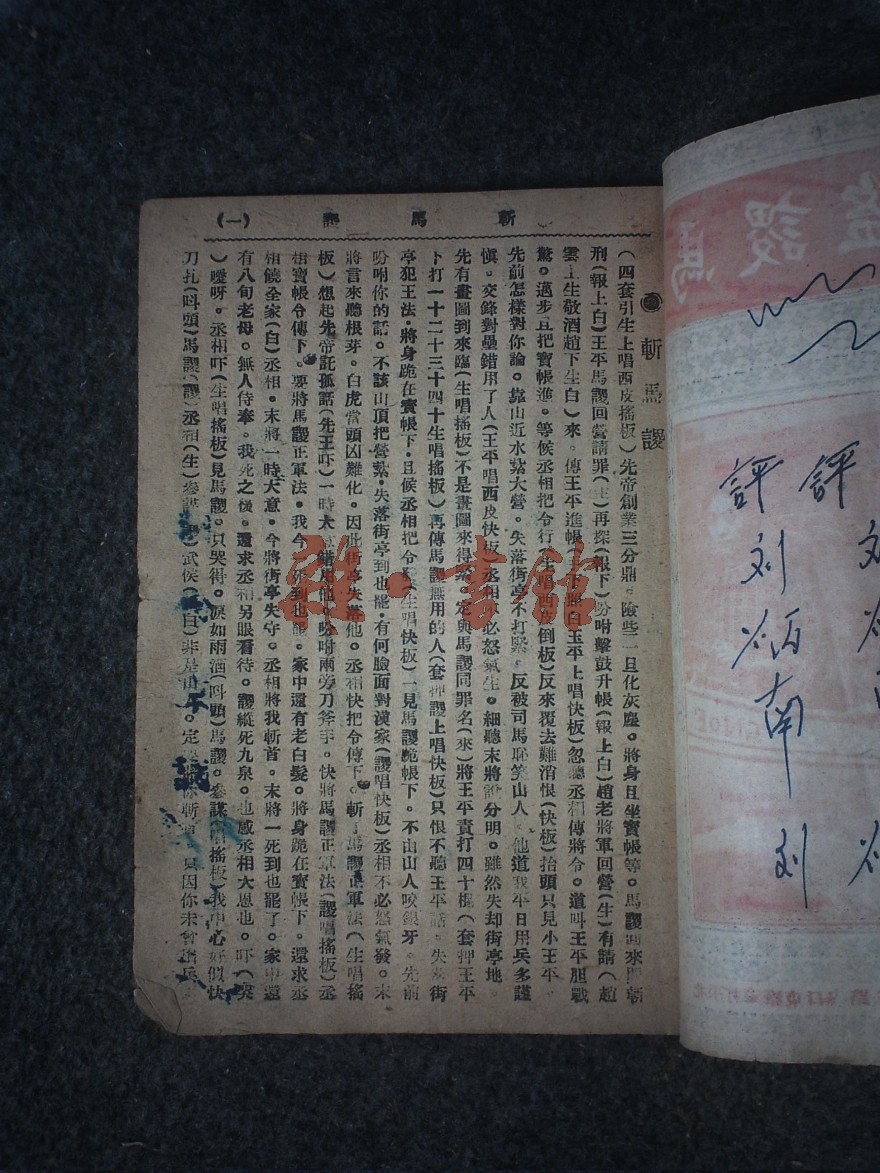 斬馬謖 (一)
斬馬謖
(四套引生上唱西皮搖板)先帝創業三分鼎。險些一旦化灰塵。將身且坐寶帳等。馬謖回來問斬
刑(報上白)王平馬謖回營請罪(生)再探(報下)吩咐擊鼓升帳(報上白)趙老將軍回營(生)有請(趙
雲上生敬酒趙下生白)來。傳王平進帳(下照白王平上唱快板)忽聽丞相傳將令。道叫王平胆戰
驚。邁步且把寶帳進。等候丞相把令行(生唱西皮倒板)反來覆去難消恨(快板)抬頭只見小王平。
先前怎樣對你論。靠山近水紮大營。失落街亭不打緊。反被司馬恥笑山人。他道我平日用兵多謹
慎。交鋒對壘錯用了人(王平唱西皮快板)丞相不必怒氣生。細聽末將說分明。雖然失却街亭地。
先有畫圖到來臨(生唱搖板)不是畫圖來得緊。定與馬謖同罪名(來)將王平責打四十棍(套押王平
卜打一十二十三十四十生唱搖板)再傳馬謖無用的人(套押謖上唱快板)只恨不聽王平話。失落街
亭犯王法。將身跪在寶帳下。且候丞相把令發(生唱快板)一見馬謖跪帳下。不由山人咬銀牙。先前
吩咐你的話。不該山頂把營紮。失落街亭到也罷。有何臉面對漢家(謖唱快板)丞相不必怒氣發。末
將言來聽根芽。白虎當頭凶難化。因此街亭失落他。丞相快把令傳下。斬了馬謖正軍法(生唱搖
板)想起先帝託孤話(先王吓)一時大意錯用他。吩咐兩旁刀斧手。快將馬謖正軍法(謖唱搖板)丞
相寶帳令傳下。要將馬謖正軍法。我今一死到也罷。家中還有老白髮。將身跪在寶帳下。還求丞
相饒全家(白)丞相。末將一時大意。今將街亭失守。丞相將我斬首。末將一死到也罷了。家中還
有八旬老母。無人侍奉。我死之後。還求丞相另眼看待。謖縱死九泉。也感丞相大恩也。吓(哭
)噯呀。丞相吓(生唱搖板)見馬謖。只哭得。淚如雨洒(叫頭)馬謖。參謀(唱搖板)我中心好似快
刀扎(叫頭)馬謖(謖)丞相(生)參謀 武侯 白)非是山 定 你斬 只因你未會
評 刘炳南
評
刘
雜·書館